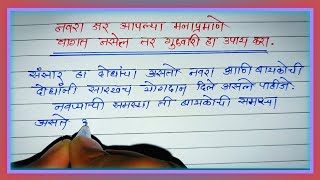 नवरा जर आपल्या मनाप्रमाणे
वागत नसेल तर गुरुवारी हा उपाय करा.
संसार हा दोघांचा असतो नवरा आणि बायकोची
दोघांनी सारखच योगदान दिले असले पाहीजे.
नवऱ्याची समस्या ती बायकोची समस्या
असते